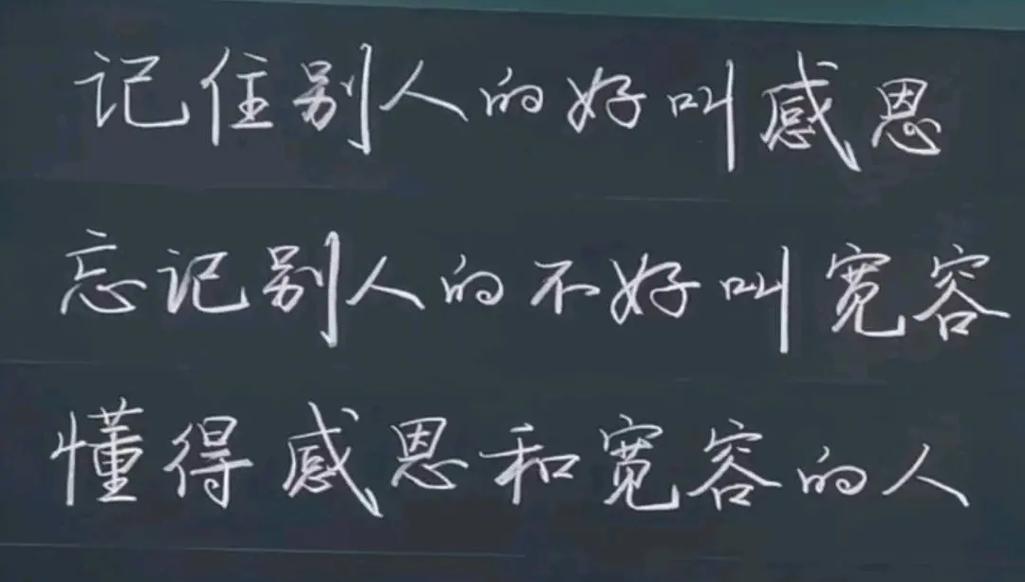 记住别人的好叫感恩
忘记别人的不好叫宽容
懂得感恩和宽容的人